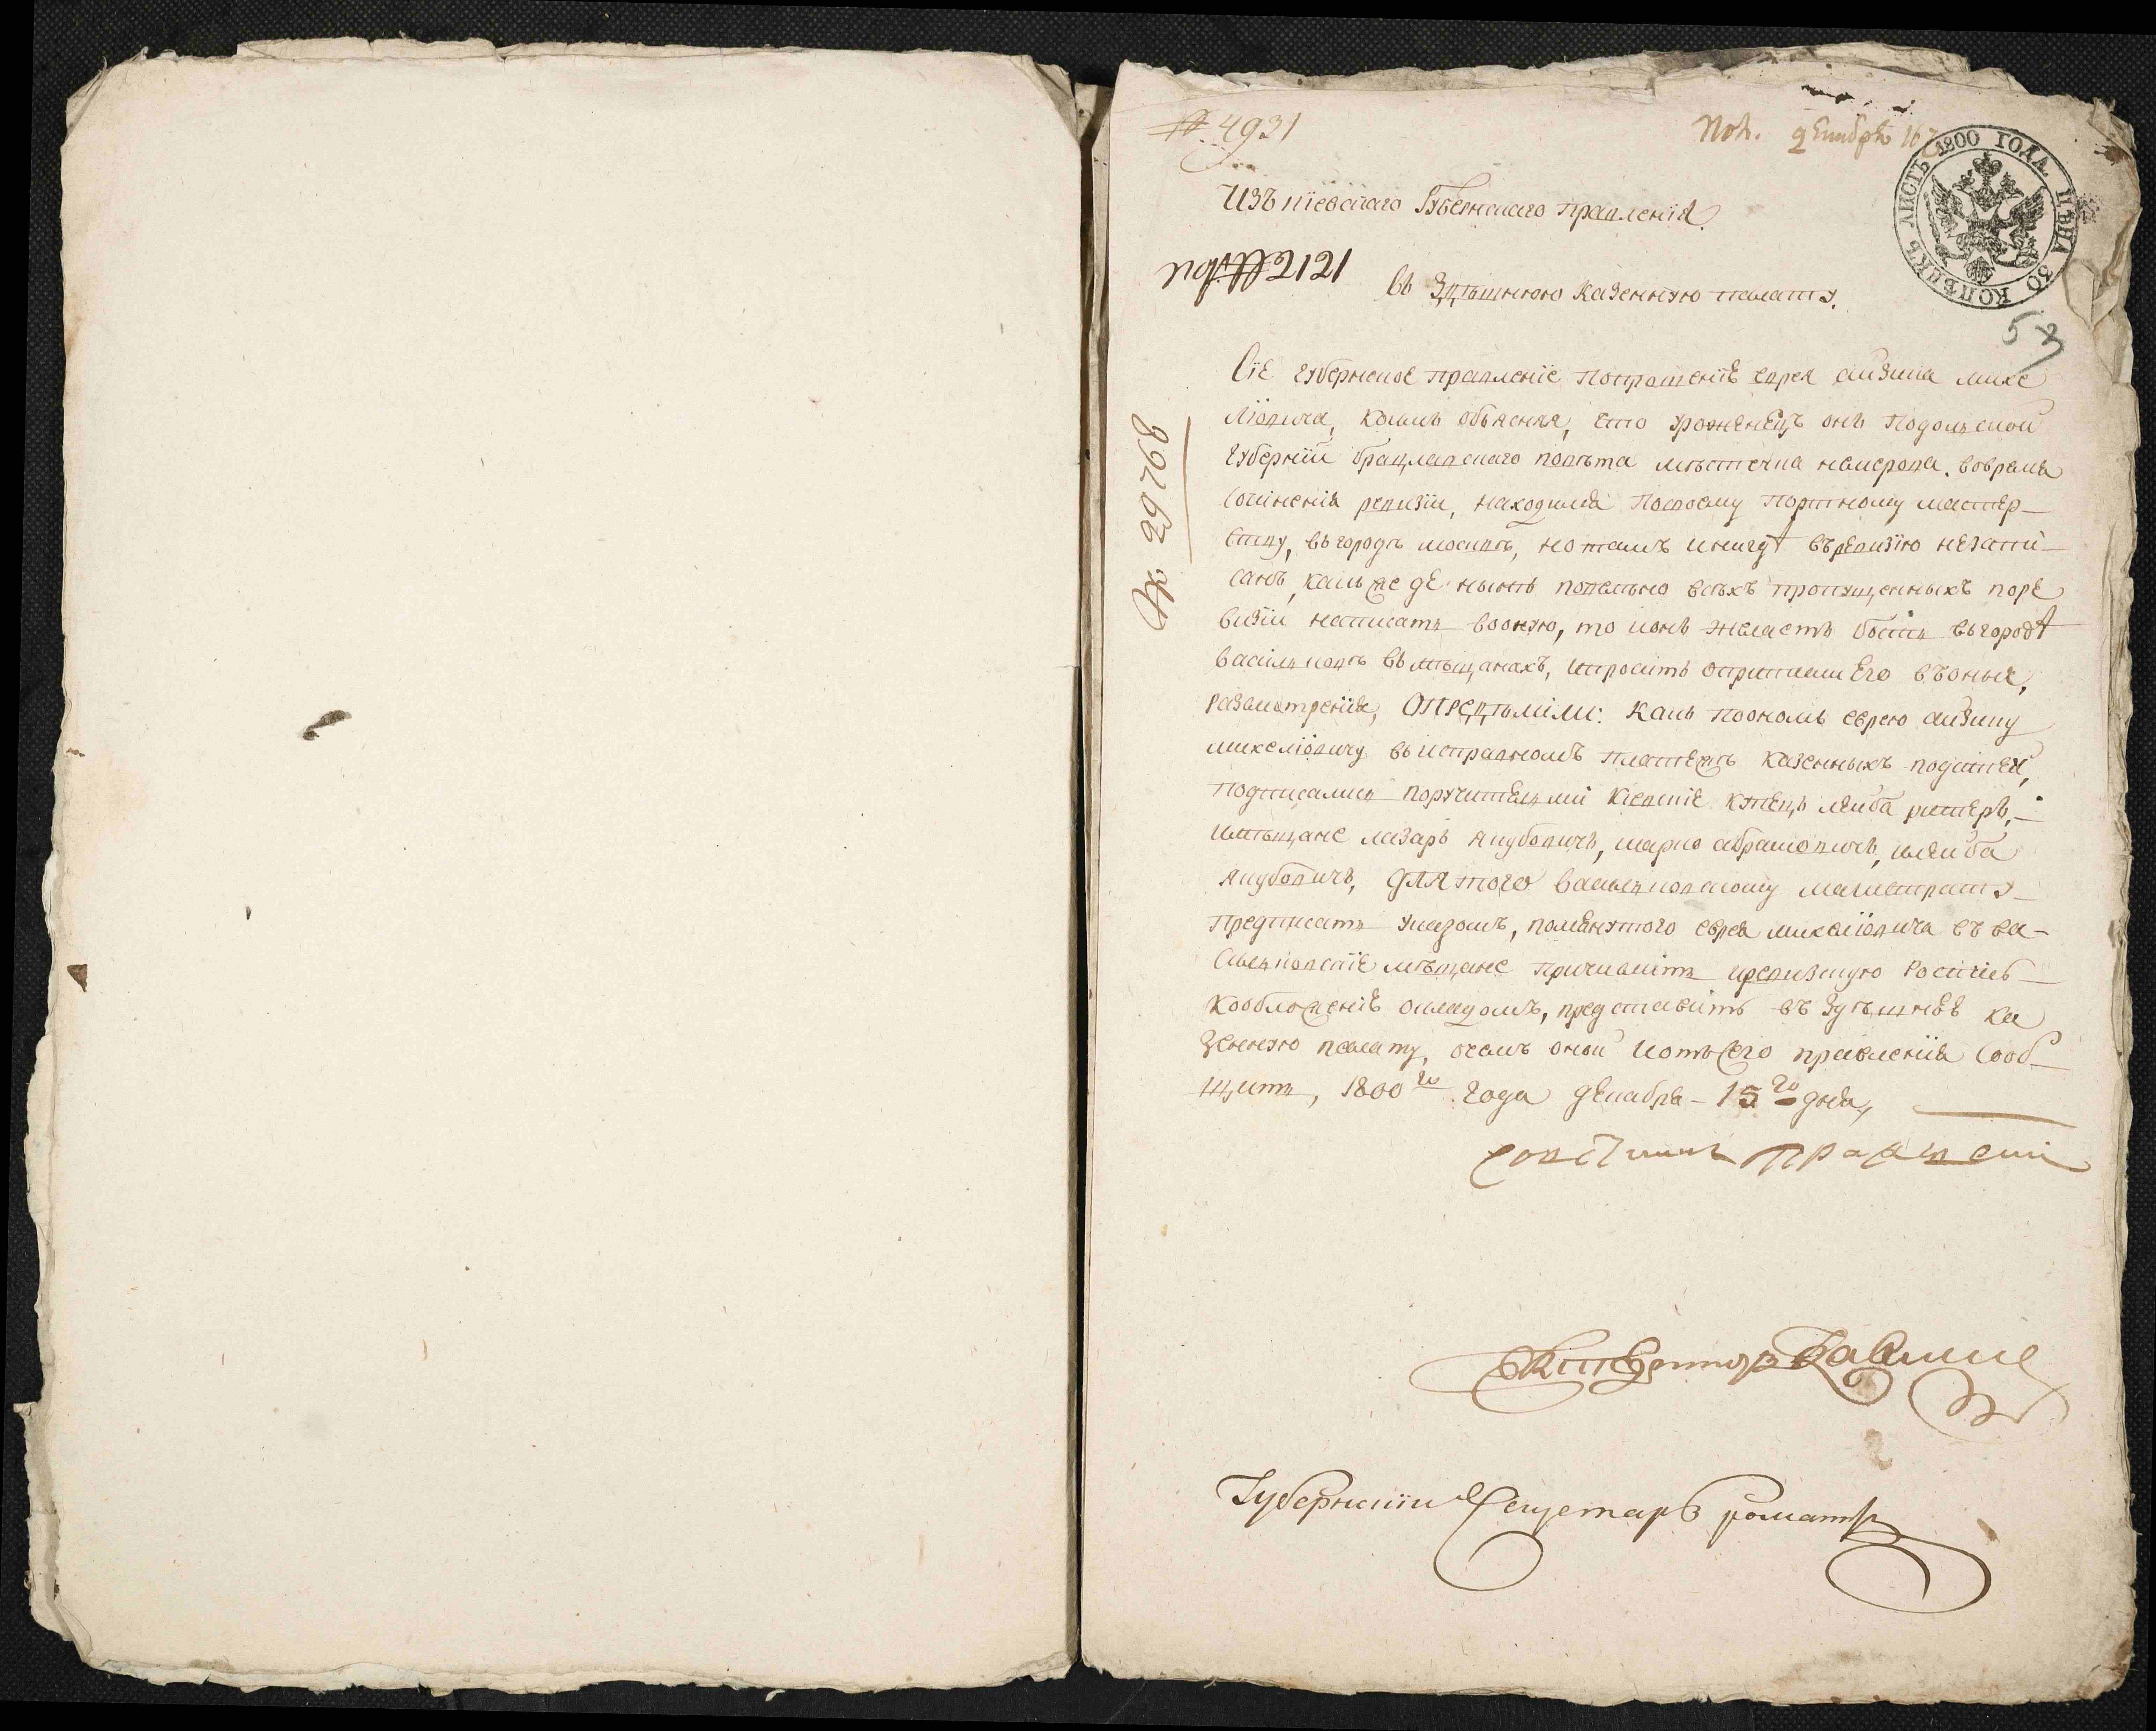 № 4931
Пол. декабря 16
ЛИСТЪ 1800 ГОДА ЦѢНА 30 КОПѢЕКЪ
Изъ киевскаго Губернскаго правленїя.
№ 2121
въ здѣшнюю казенную палату.
53
Сїе губернское правленїе попрошенїю еврея айзика мике
лїовича, коимъ объясняя, что уроженецъ онъ Подольской
губернїи брацлавскаго повѣта мѣстечка немерова. вовремя
сочиненїя ревизїи, находился посвоему портному мастер-
ству, въ городѣ москвѣ, но тамъ и нигдѣ въ ревизїю незапи-
санъ, какъ же де нынѣ повелено всѣхъ пропущенныхъ поре
визїи написать вооную, то ионъ желаетъ быть въ городѣ
василковѣ въ мѣщанахъ, ипроситъ оприписки Его въ оныя,
разсмотренїя, ОПРЕДѢЛИЛИ: какъ поономъ еврею айзику
микелїовичу въ исправномъ платежѣ казенныхъ податей,
подписались поручителями киевские купецъ лейба
имѣщане лазарь якубовичъ, марко абрамовичъ, илейба
якубовичъ, ДЛЯ того васильковскому магистрату
предписать указомъ, помянутого еврея микелїовича въ ва-
сильковскїе мѣщане причислить иревизкую
кообложенїю окладомъ, представить въ здѣшнюю ка
зенную палату, очемъ оной иотъ сего правленїя сооб-
щить, 1800го года декабря 15го дня,
№ 29268
Совѣтникъ
Губернский Секретарь